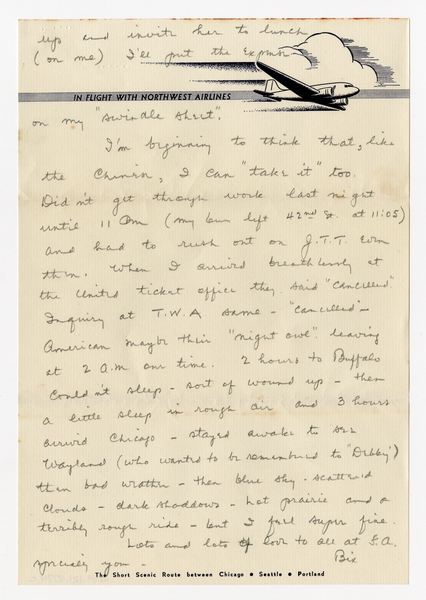 up and invite her to lunch
(on me) I'll put the expense
IN FLIGHT WITH NORTHWEST AIRLINES
on my "swindle sheet".
I'm beginning to think that, like
the Chinese, I can "take it" too.
Didn't get through work last night
until 11 Pm (my bus left 42nd St. at 11:05)
and had to rush out on J.T.T. even
then. When I arrived breathlessly at
the United ticket office they said "Cancelled."
Inquiry at T.W.A same - "Cancelled" -
American maybe their "night owl" leaving
at 2 A.m our time. 2 hours to Buffalo
Couldn't sleep - sort of wound up - then
a little sleep in rough air and 3 hours
arrived Chicago - stayed awake to see
Wayland (who wanted to be remembered to "Debby")
then bad weather - then blue sky - scattered
clouds - dark shaddows - hot prairie and a
terribly rough ride - but I feel super fine.
Lots and lots of love to all at
specially you - Bix
The Short Scenic Route between Chicago • Seattle • Portland